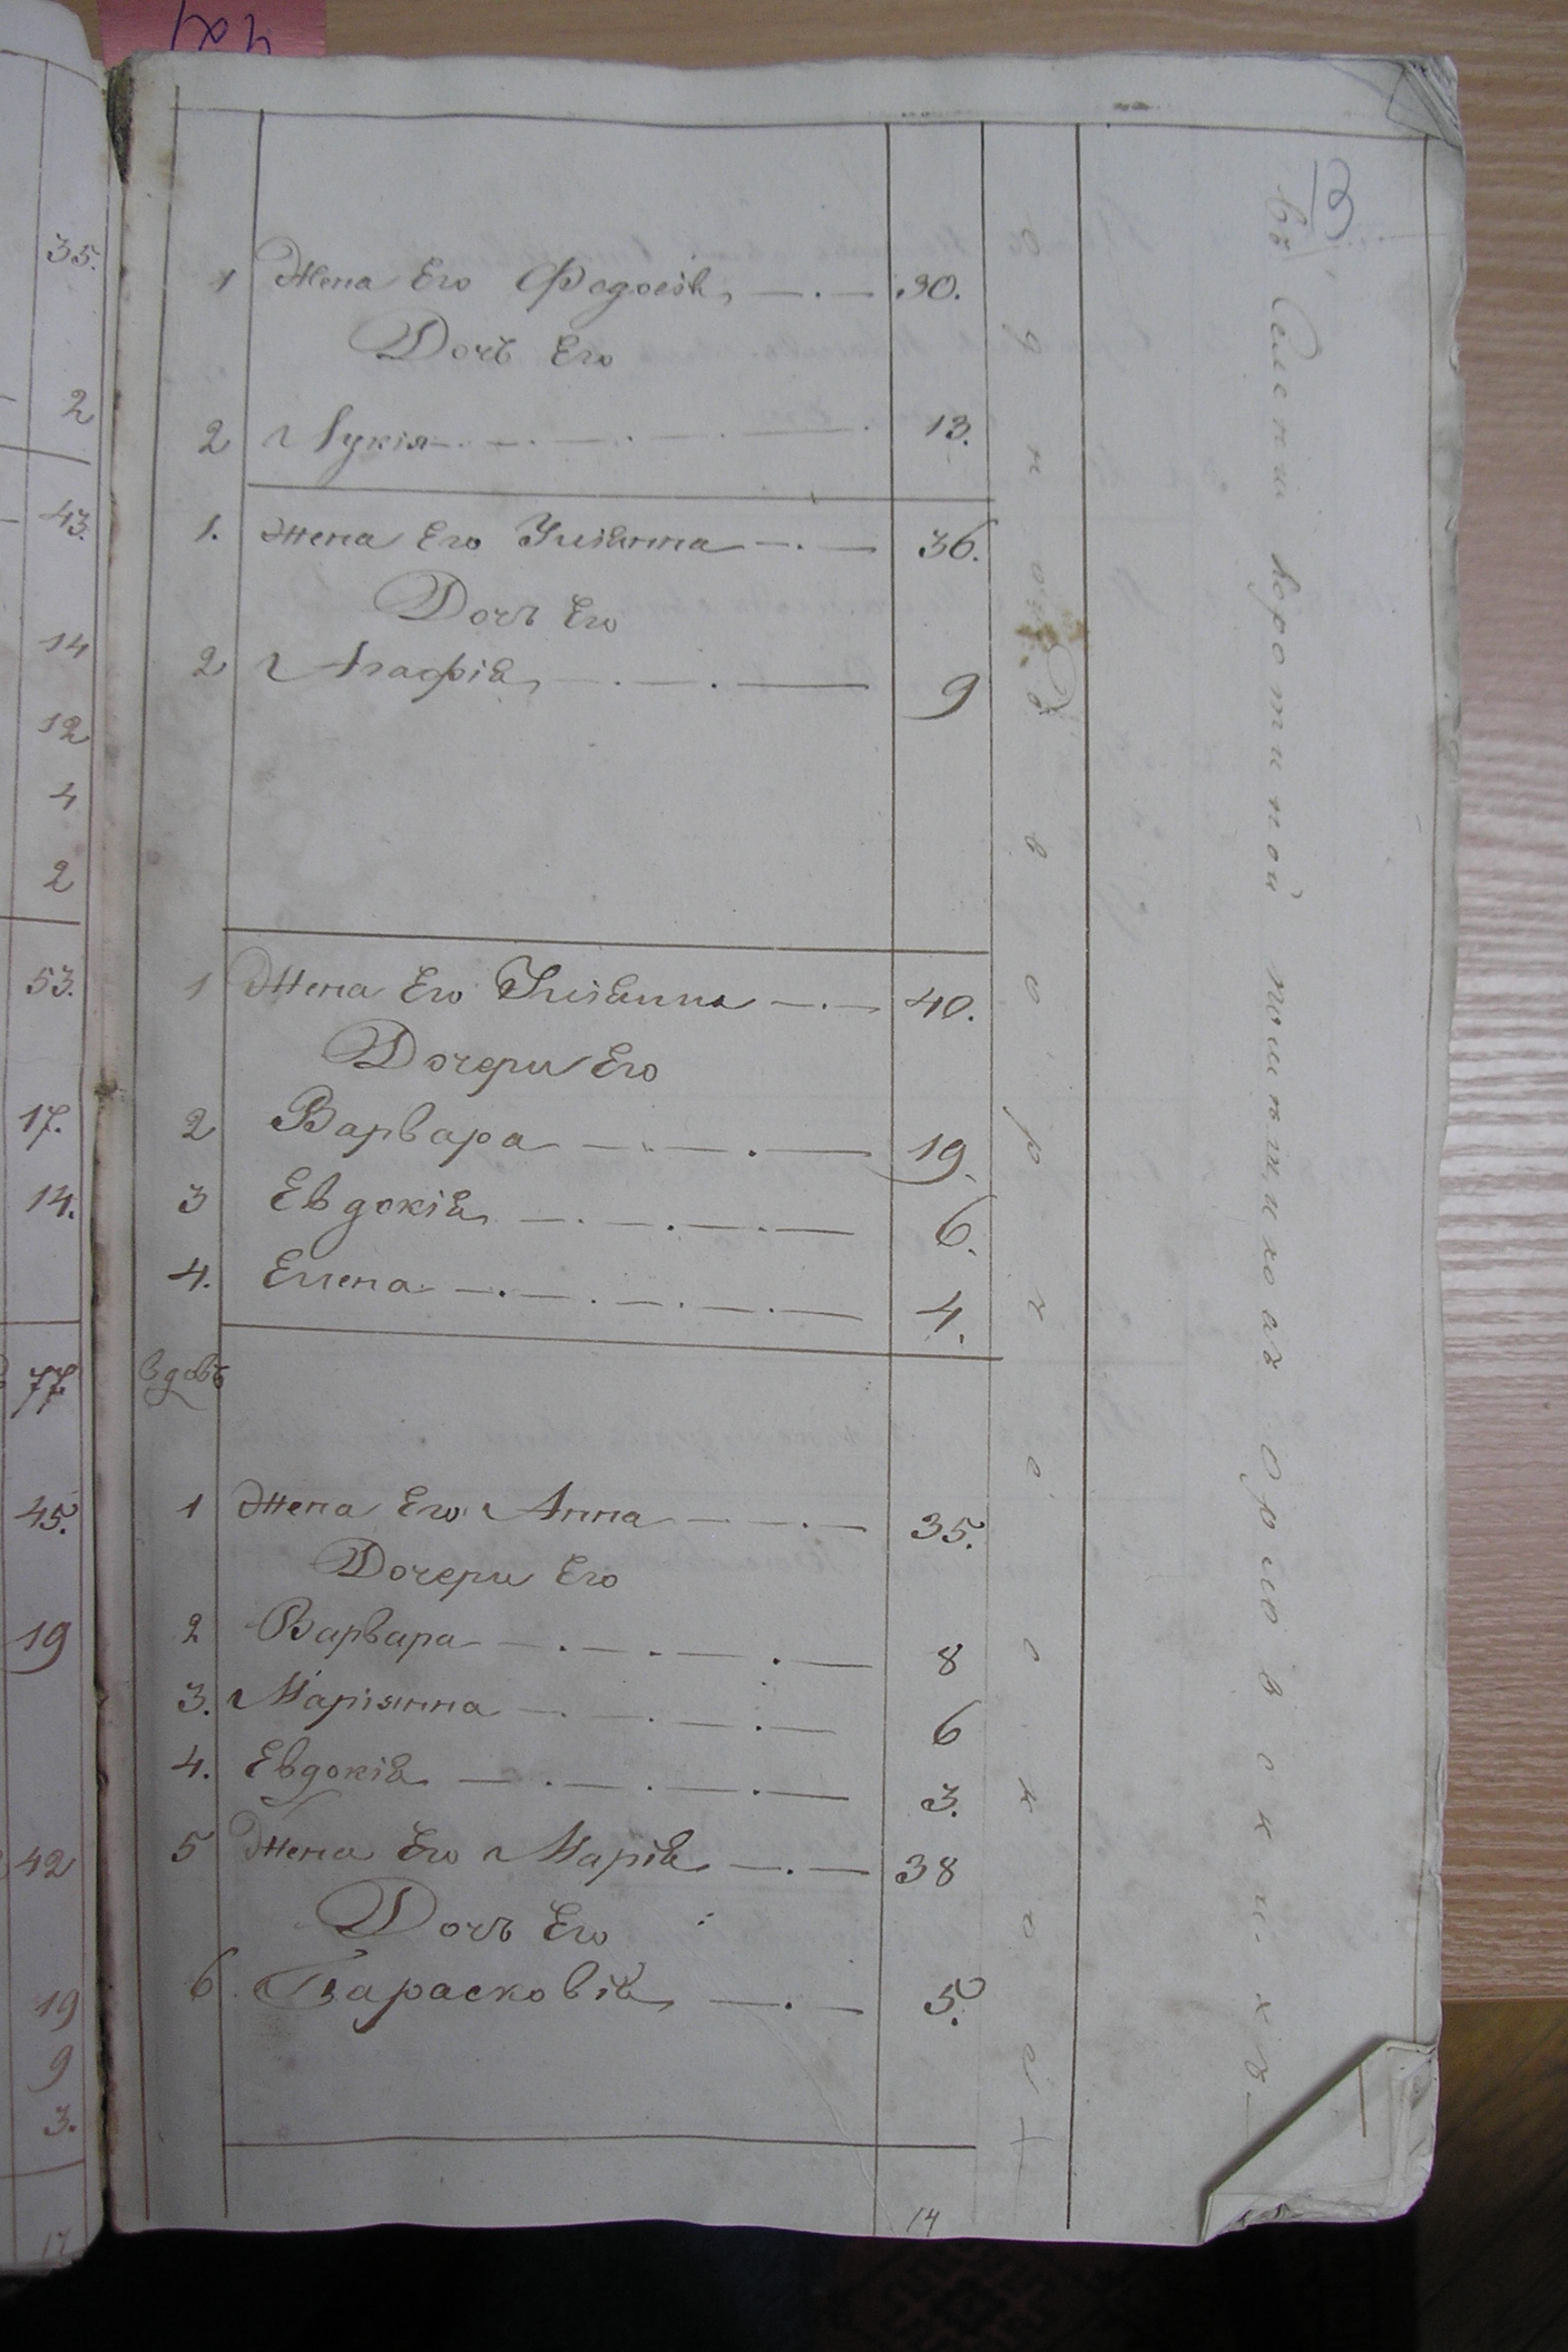 1 Жена Его Федосія 30.
Дочь Его
2 Лукія 13.
1. Жена Его Уліанна 36.
Дочь Его
2 Агафія 9
1 Жена Его Уліанна 40.
Дочери Его
2 Варвара 19.
3 Евдокія 6.
4. Елена 4.
вдовъ
1 Жена Его Анна 35.
Дочери Его
2 Варвара 8
3. Маріанна 6
4. Евдокія 3.
5 Жена Его Марія 38
Дочь Его
6 Парасковія 5.
14
о д н о д в о р ч е с к о е
въ Селеніи
13
35.
2
43.
14
12
4
2
53.
17.
14.
77
45.
19
42
19
9
3.
17